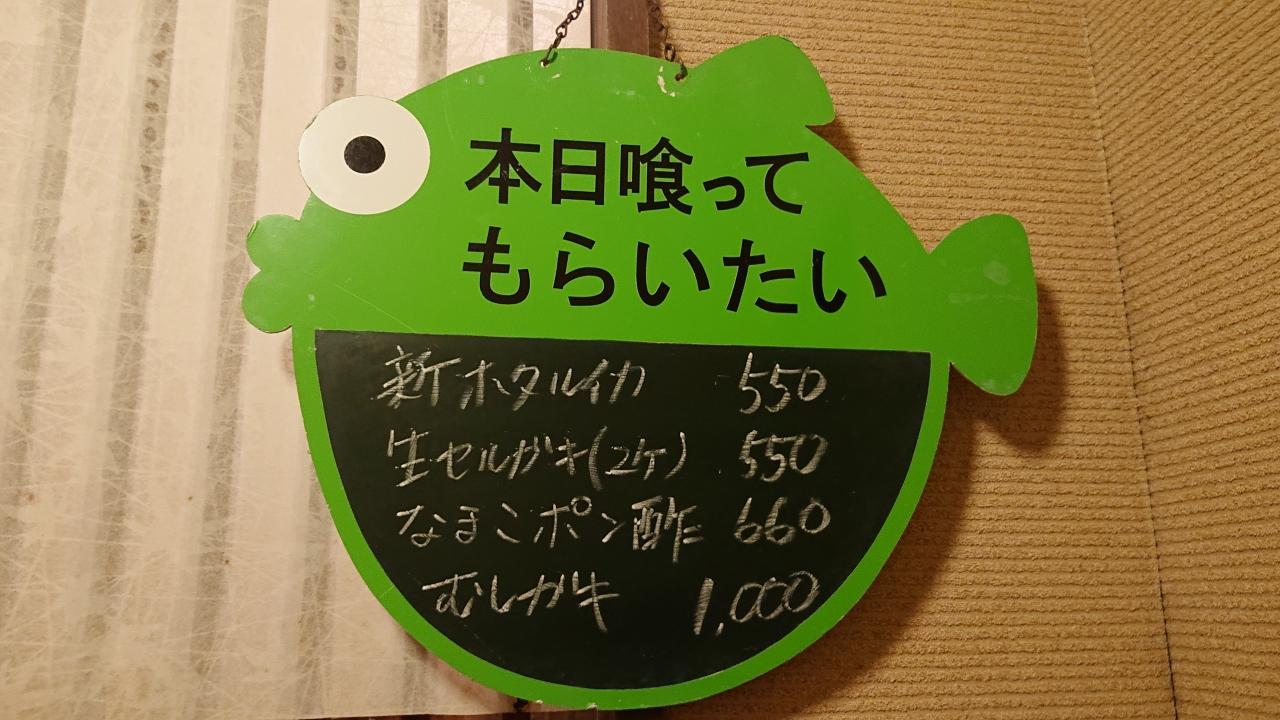 本日喰って
もらいたい
新ホタルイカ 550
生セルガキ(2ケ) 550
なまこポン酢 660
むしガキ 1,000